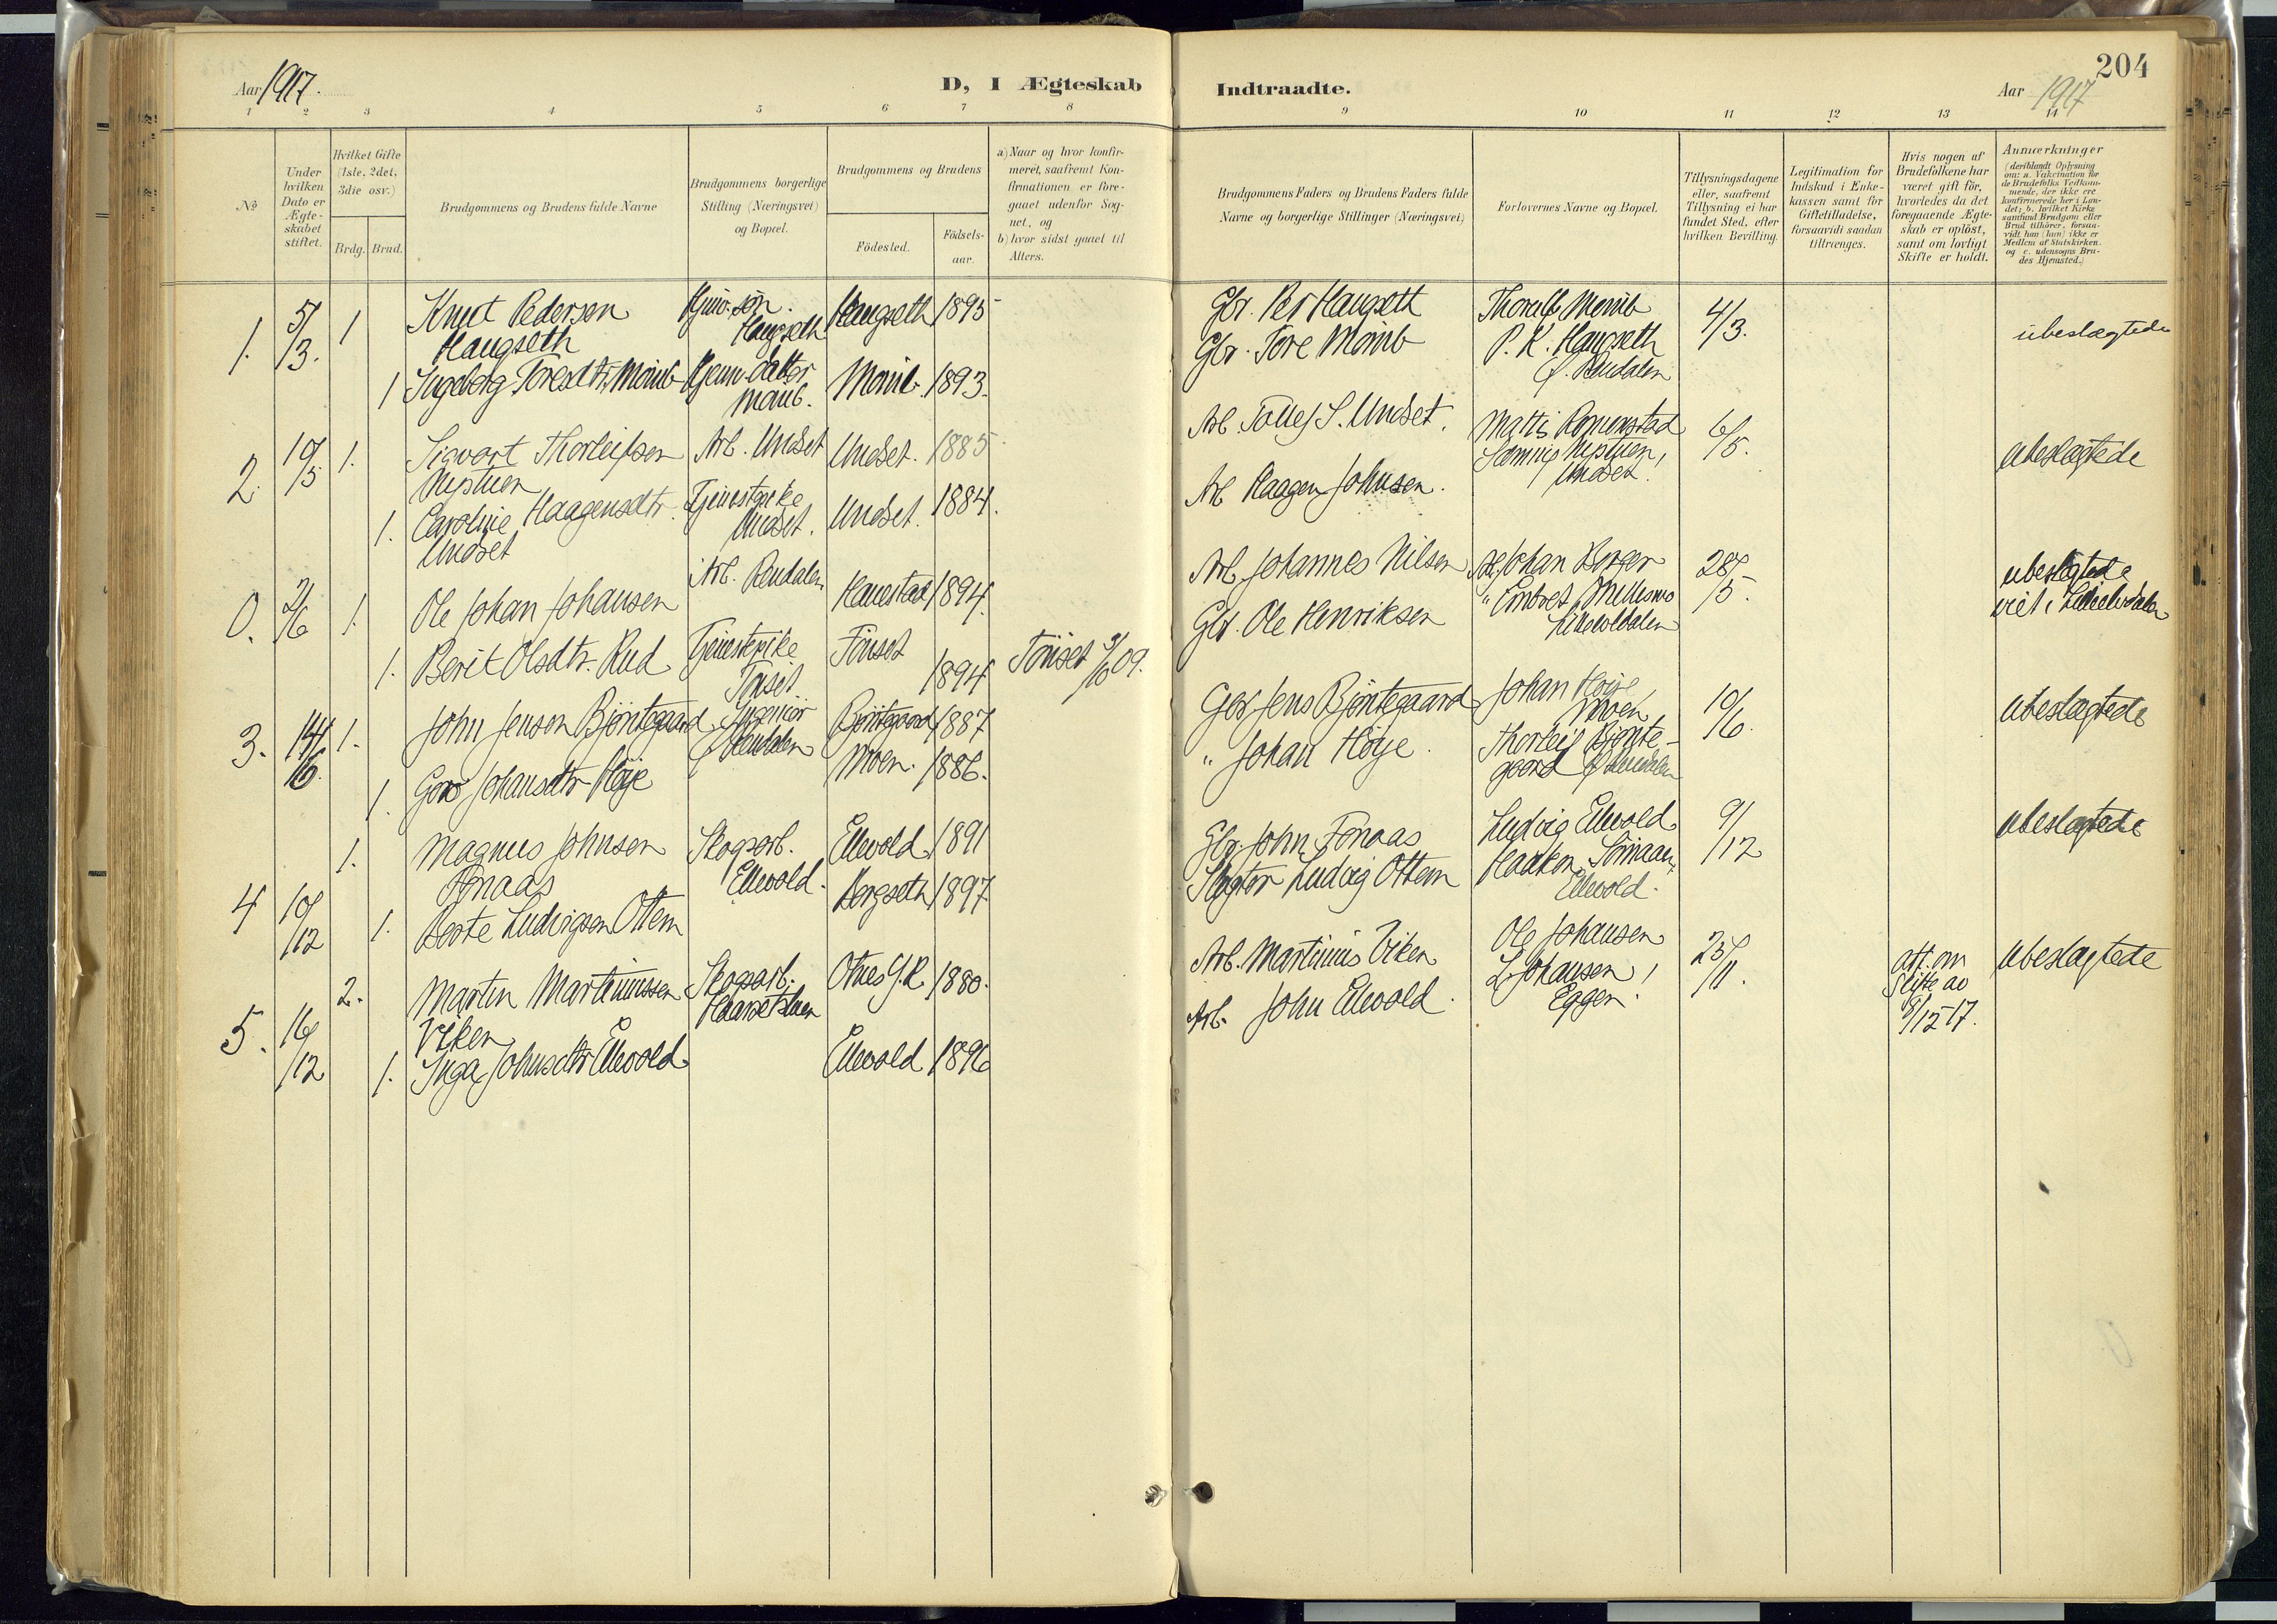 204
Aar 1917.
D, I Ægteskab
Indtraadte.
Aar 1917
1 2 3 4 5 6 7 8 9 10 11 12 13 14
No
Under hvilken Dato er Ægteskabet stiftet.
Hvilket Gifte (1ste, 2det, 3die osv.)
Brdg. Brud.
Brudgommens og Brudens fulde Navne
Brudgommens borgerlige Stilling (Næringsvei) og Bopæl.
Brudgommens og Brudens
Födested.
Födselsaar.
a) Naar og hvor konfirmeret, saafremt Konfirmationen er foregaaet udenfor Sognet, og
b) hvor sidst gaaet til Alters.
Brudgommens Faders og Brudens Faders fulde Navne og borgerlige Stillinger (Næringsvei)
Forlovernes Navne og Bopæl.
Tillysningsdagene eller, saafremt Tillysning ei har fundet Sted, efter hvilken Bevilling.
Legitimation for Indskud i Enkekassen samt for Giftetilladelse, forsaavidt saadan tiltrænges.
Hvis nogen af Brudefolkene har været gift för, hvorledes da det foregaaende Ægteskab er oplöst, samt om lovligt Skifte er holdt.
Anmærkninger
(deriblandt Oplysning om: a. Vakcination for de Brudefolks Vedkommende, der ikke ere konfirmerede her i Landet; b. hvilket Kirkesamfund Brudgom eller Brud tilhörer, forsaavidt han (hun) ikke er Medlem af Statskirken. og c. udensogns Brudes Hjemsted.)
1. 5/3. 1 Knut Pedersen Haugseth
Haugseth
Haugseth 1895
Gbr. Per Haugseth
Thoralf Momb
4/3.
ubeslægtede
1 Ingeborg Toresdtr. Momb
Hjemmedatter Momb.
Momb. 1893.
Gbr. Tore Momb
P. K. Haugseth
Ø. Rendalen
2. 19/5 1. Sigvart Thorleifsen Neptuen
Arb. Undset
Undset. 1885
Arb. Tollef S. Undset.
Matti Romenstad
Neptuen, Undset.
6/5.
ubeslægtede
1. Caroline Haagensdtr. Undset
Tjenestepike Undset.
Undset. 1884.
Arb Haagen Johnsen.
0. 2/6 1. Ole Johan Johansen
Arb. Rendalen
Hanestad 1894.
Arb Johannes Nilsen
Johan Berger
28/5.
ubeslægtede
viet i Lilleelvdalen
1. Berit Olsdtr. Rud
Tjenestepike Tönset
Tönset 1894
Tönset 3/10 09.
Gbr. Ole Henriksen
" Embret Millemo
Lilleelvdalen
3. 14/6. 1. John Jensen Bjöntegaard
Ingeniör Ø Rendalen
Bjöntegaard 1887
Gbr Jens Bjöntegaard
Johan Höije, Moen
10/6.
ubeslægtede
1. Goro Johansdtr Höije
Moen. 1886.
" Johan Höije.
Thorleif Bjöntegaard Ø Rendalen
4 10/12 1. Magnus Johnsen Fonaas
Skogsarb. Ellevold.
Ellevold 1891
Gbr. John Fonaas
Ludvig Ellevold
9/12
ubeslægtede
1. Berte Ludvigsen Ottem
Bergseth 1897
Ludvig Ottem
Haakon
Ellevold.
5. 16/12 2. Martin Martinussen Viken
Skogsarb.
Otnes Y.R. 1880.
Arb. Martinus Viken
Ole Johansen
25/11.
att. om Skifte av 8/12-17.
ubeslægtede
1. Inga Johnsdtr Ellevold
Ellevold 1896
Arb. John Ellevold.
L. Johansen, Eggen.